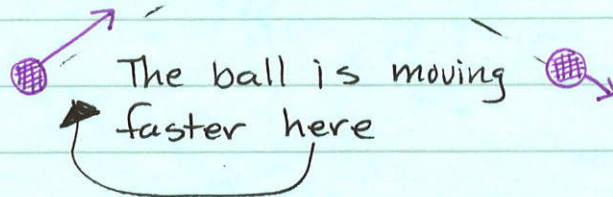 The ball is moving
faster here